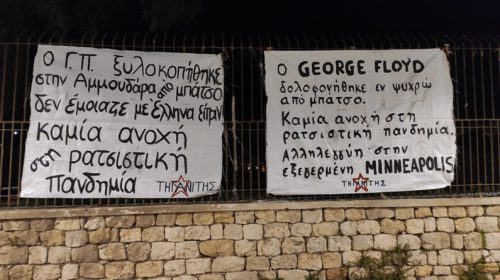 Ο Γ.Π. ξυλοκοπήθηκε
στην Αμμουδάρα από μπάτσο
δεν έμοιαζε με έλληνα είπαν
καμία ανοχή
στη ρατσιστική
πανδημία
ΤΗΓΑΝΙΤΗΣ
Ο GEORGE FLOYD
δολοφονήθηκε εν ψυχρώ
από μπάτσο.
Καμία ανοχή στη
ρατσιστική πανδημία.
Αλληλεγγύη στην
εξεγερμένη MINNEAPOLIS
ΤΗΓΑΝΙΤΗΣ